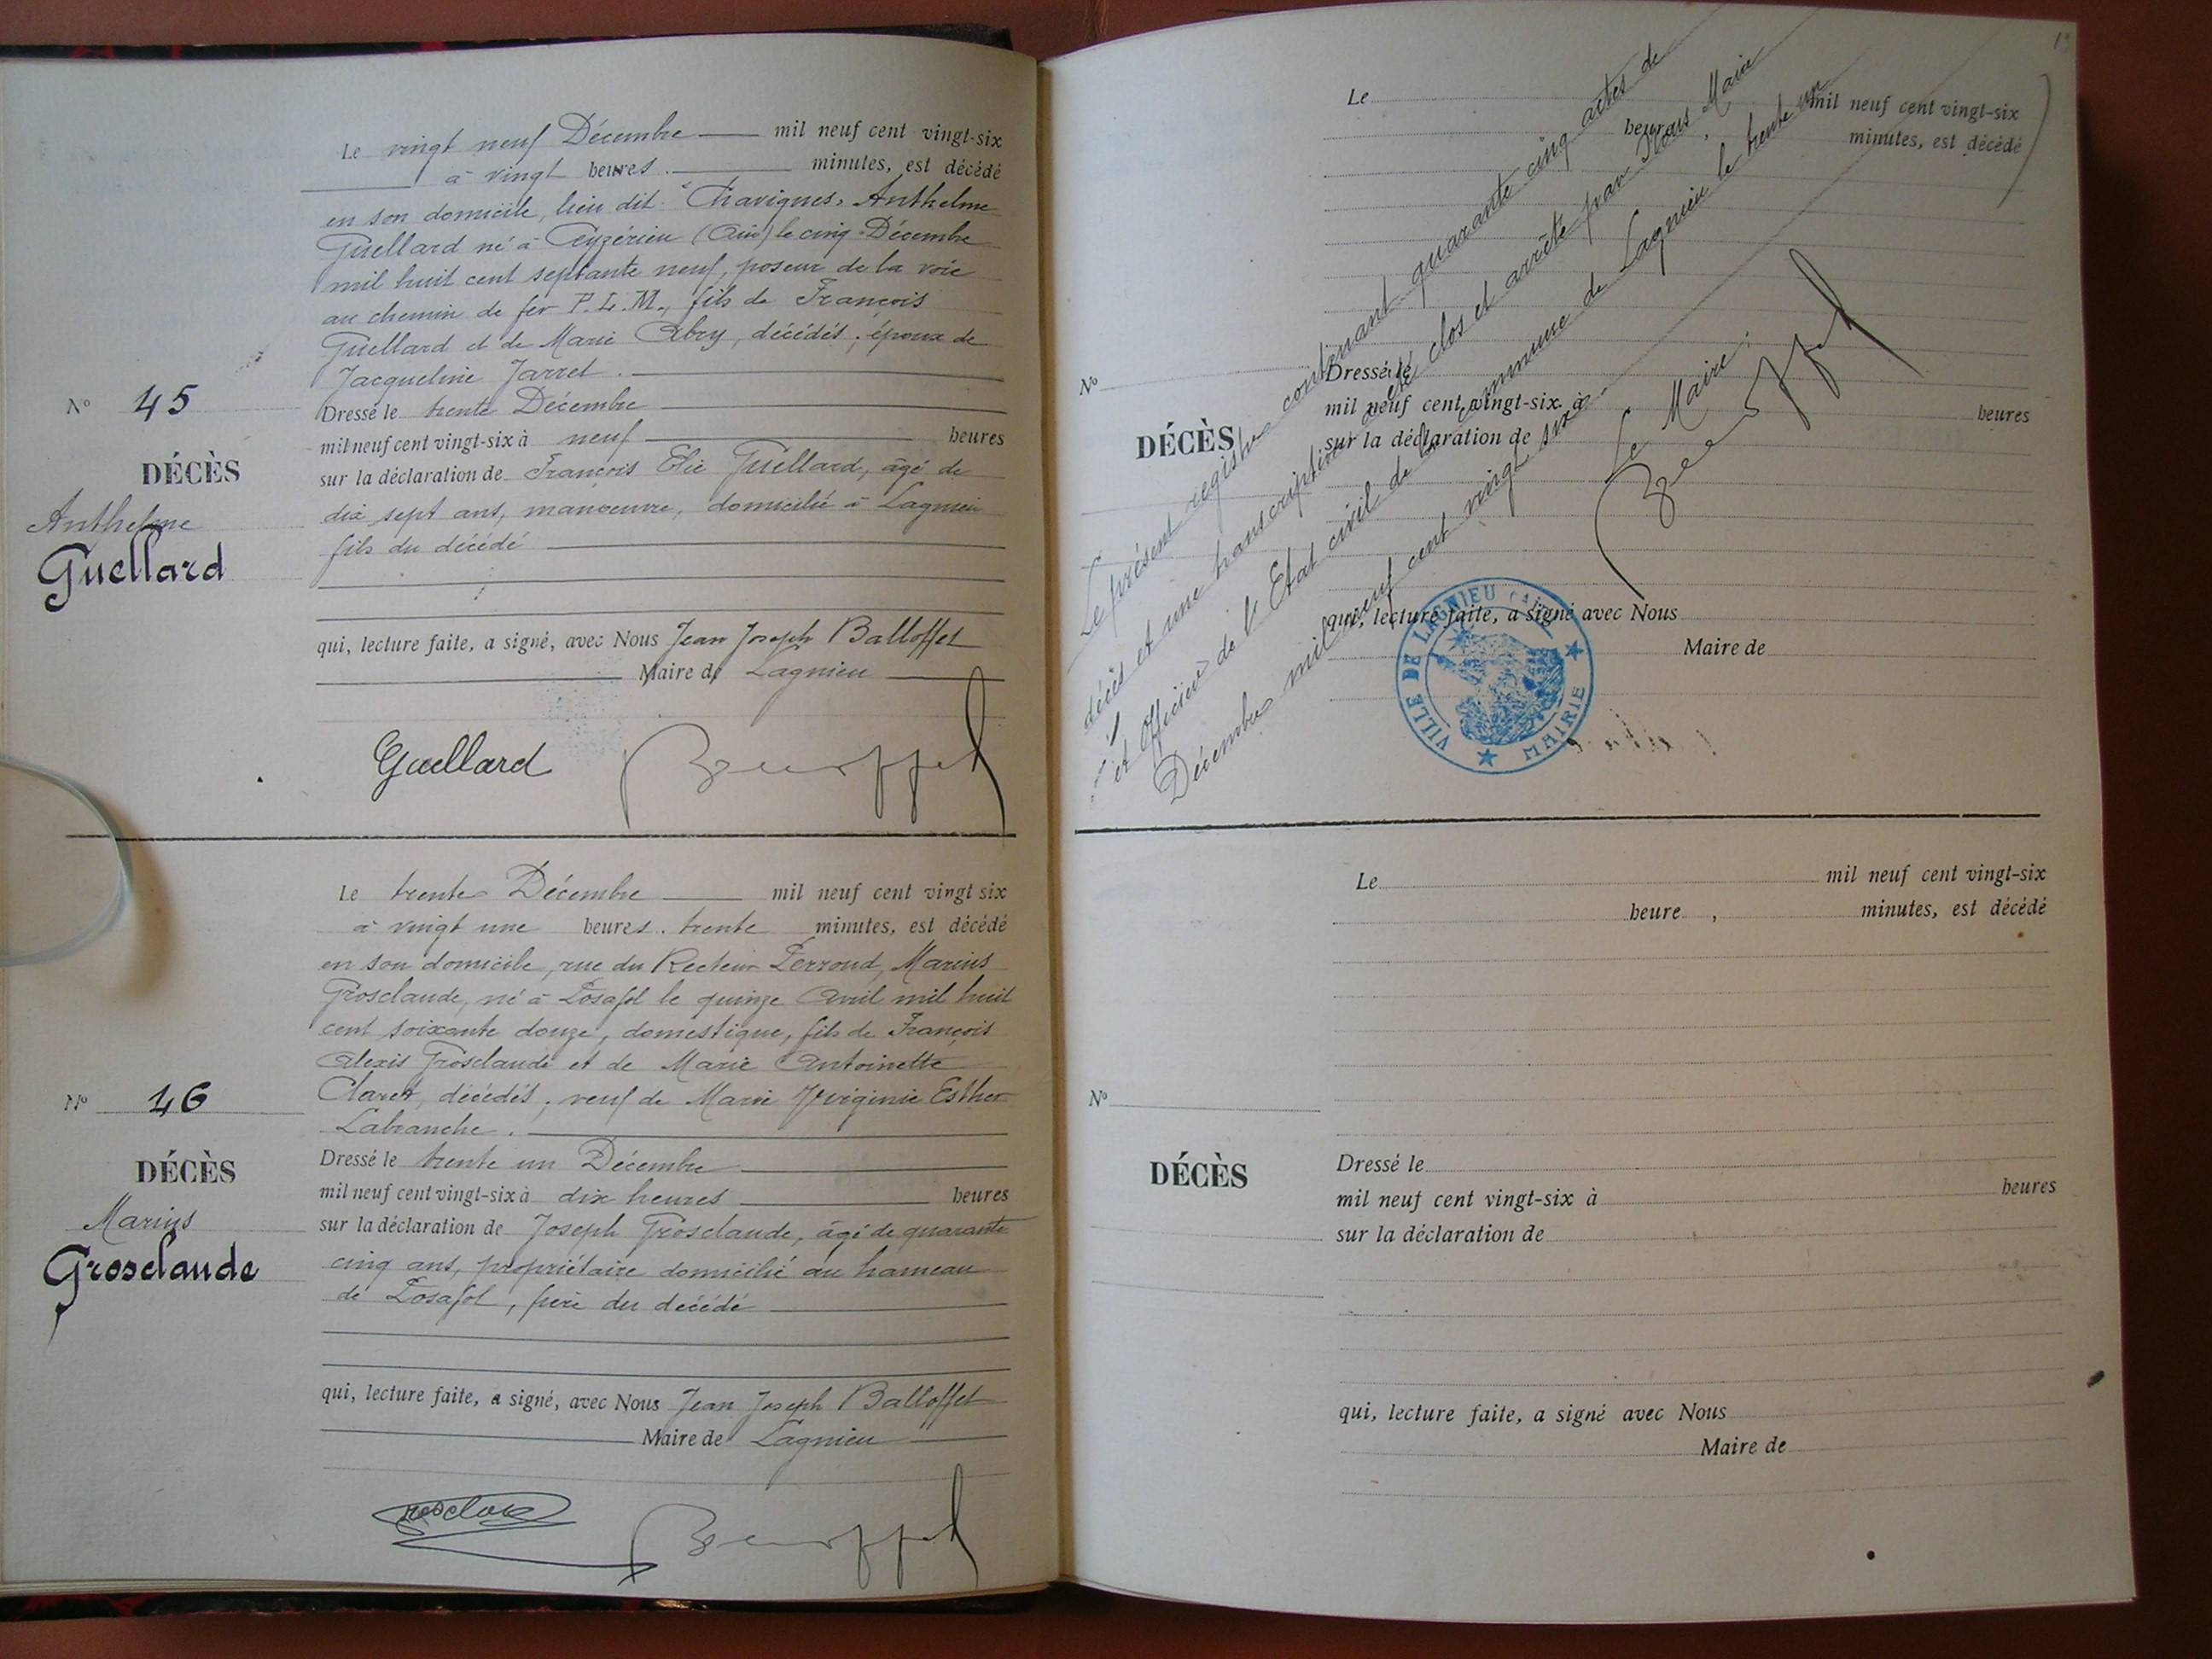 Le vingt neuf Décembre mil neuf cent vingt-six
à vingt heures. minutes, est décédé
en son domicile, lieu dit "Chavignes" Anthelme
Guellard né à Cyzérieu (Ain) le cinq Décembre
mil huit cent septante neuf, poseur de la voie
au chemin de fer P.L.M., fils de François
Guellard et de Marie Abry, décédés; époux de
Jacqueline Jarret.
N° 45
Dressé le trente Décembre
mil neuf cent vingt-six à neuf heures
DÉCÈS
sur la déclaration de François Elie Guellard, âgé de
Anthelme
dix sept ans, manoeuvre, domicilié à Lagnieu
fils du décédé
Guellard
qui, lecture faite, a signé, avec Nous Jean Joseph Balloffet
Maire de Lagnieu
Guellard
Le trente Décembre mil neuf cent vingt six
à vingt une heures. trente minutes, est décédé
en son domicile, rue du Recteur Perroud, Marius
Grosclaude, né à Posafol le quinze Avril mil huit
cent soixante douze, domestique, fils de François
Alexis Grosclaude et de Marie Antoinette
N° 46
Claret, décédés; veuf de Marie Virginie Esther
Labranche.
Dressé le trente un Décembre
DÉCÈS
mil neuf cent vingt-six à dix heures heures
Marius
sur la déclaration de Joseph Grosclaude, âgé de quarante
Grosclaude
cinq ans, propriétaire domicilié au hameau
de Posafol, frère du décédé
qui, lecture faite, a signé, avec Nous Jean Joseph Balloffet
Maire de Lagnieu
Le mil neuf cent vingt-six
heures minutes, est décédé
N°
Dressé le
mil neuf cent vingt-six à heures
DÉCÈS
sur la déclaration de
qui, lecture faite, a signé avec Nous
Maire de
Le présent registre contenant quarante cinq actes de
décès et une transcription a été clos et arrêté par Nous, Maire
et Officier de l'Etat civil de la commune de Lagnieu le trente un
Décembre mil neuf cent vingt six
Le Maire:
VILLE DE LAGNIEU (AIN)
MAIRIE
Le mil neuf cent vingt-six
heure , minutes, est décédé
N°
DÉCÈS
Dressé le
mil neuf cent vingt-six à heures
sur la déclaration de
qui, lecture faite, a signé avec Nous
Maire de